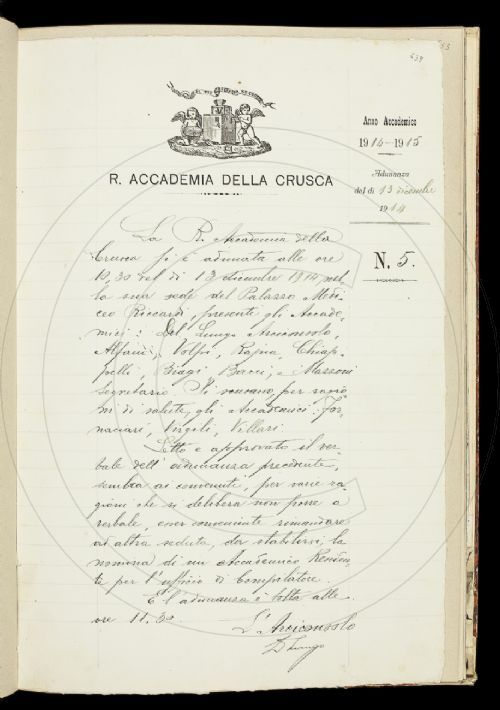 439
R. ACCADEMIA DELLA CRUSCA
Anno Accademico
1914-1915
Adunanza
del dì 13 dicembre
1914
N. 5.
La R. Accademia della
Crusca si è adunata alle ore
10,30 del dì 13 dicembre 1914, nel-
la sua sede del Palazzo Medi-
ceo Riccardi, presenti gli Accade-
mici: Del Lungo Arciconsolo,
Alfani, Volpi, Rajna, Chiap-
pelli, Biagi, Bacci, e Mazzoni
Segretario. Si scusano per ragio
ni di salute, gli Accademici: For
naciari, Virgili, Villari.
Letto e approvato il ver-
bale dell'adunanza precedente,
sembra ai convenuti, per varie ra
gioni che si delibera non porre a
verbale, esser conveniente rimandare
ad altra seduta, da stabilirsi, la
nomina di un Accademico Residen-
te per l'ufficio di Compilatore.
E l'adunanza è sciolta alle
ore 11.30.
L'Arciconsolo
D Lungo